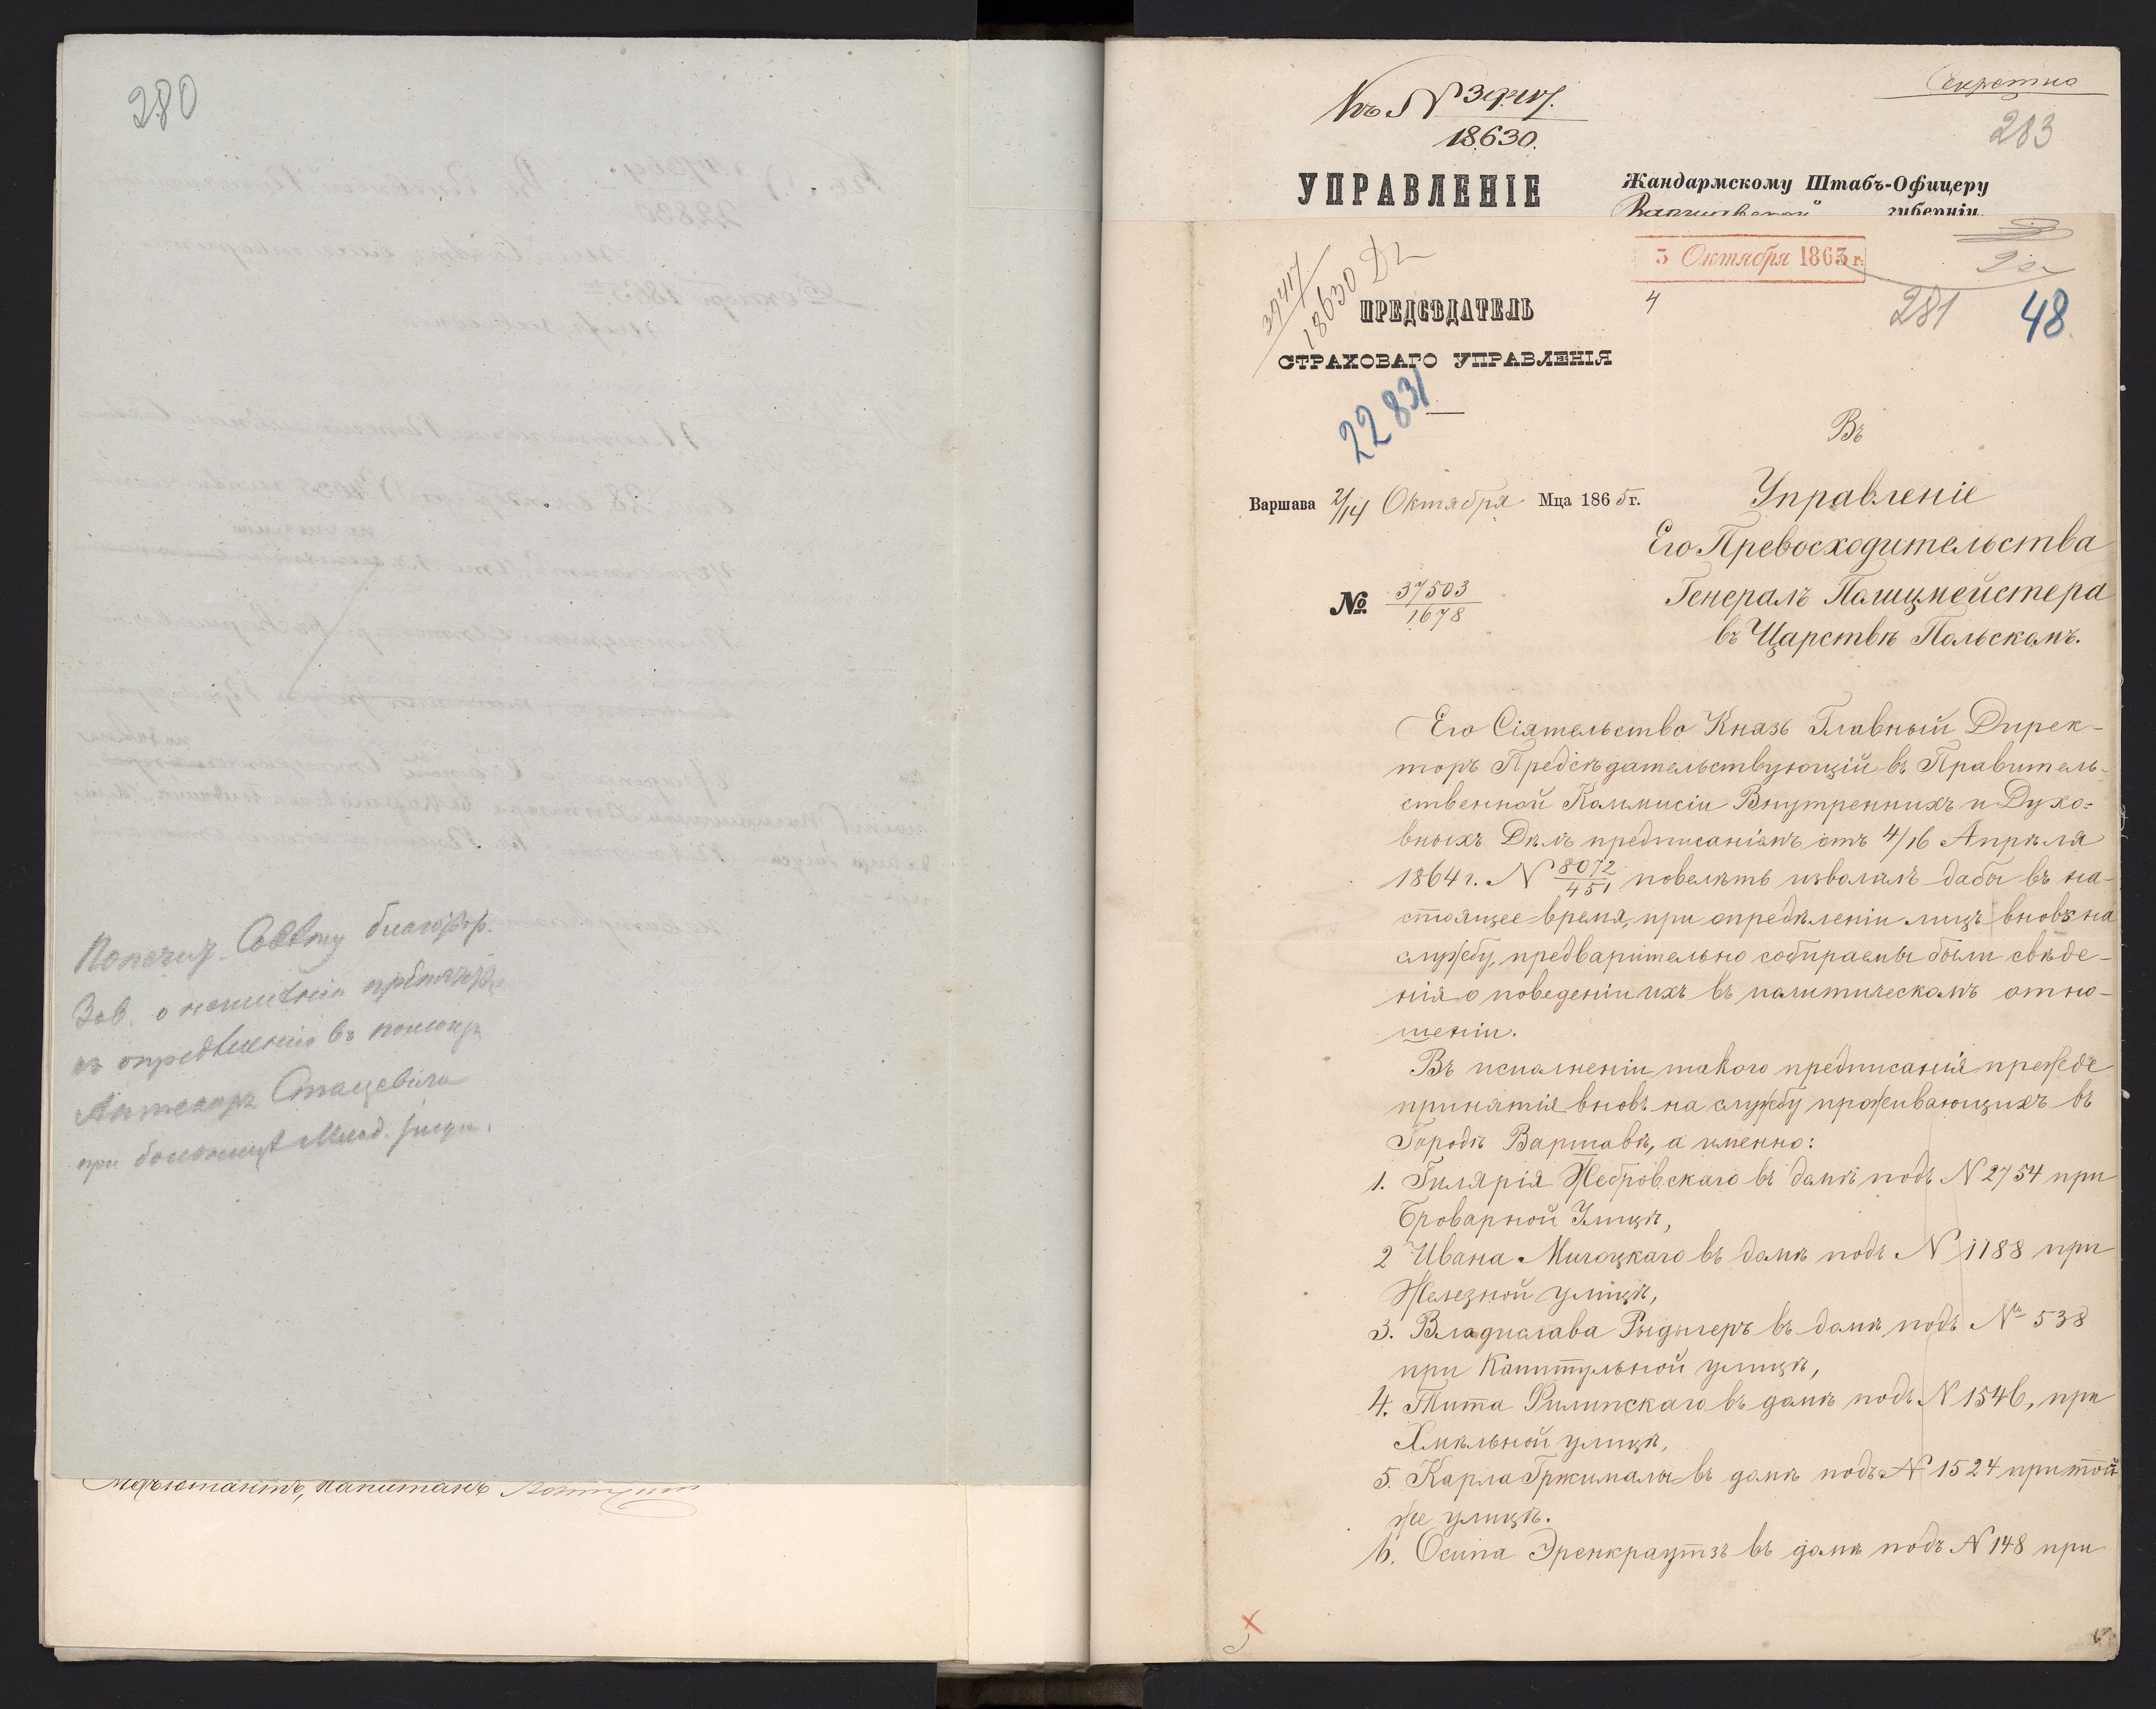 280
Попечит. Совѣту благотв.
Зав. о неимѣніи препятств.
къ опредѣленію въ помощн.
Аптекаря Стацевича
при больницѣ Млад. Іисуса.
Адъютантъ, Капитанъ
Секретно
283
Къ № 39417
18630.
УПРАВЛЕНІЕ
Жандармскому Штабъ-Офицеру
Варшавской губерніи.
3 Октября 1865 г.
4
281
48.
39417
18630
ПРЕДСѢДАТЕЛЬ
СТРАХОВАГО УПРАВЛЕНІЯ
22831
Варшава 2/14 Октября Мца 1865 г.
№ 37503
1678
Въ
Управленіе
Его Превосходительства
Генералъ Полицмейстера
въ Царствѣ Польскомъ.
Его Сіятельство Князь Главный Дирек-
торъ Предсѣдательствующій въ Правитель-
ственной Коммисіи Внутреннихъ и Духо-
вныхъ Дѣлъ предписаніемъ отъ 4/16 Апрѣля
1864 г. N 8072/451 повелѣть изволилъ дабы въ на-
стоящее время, при опредѣленіи лицъ вновь на
службу, предварительно собираемы были свѣде-
нія о поведеніи ихъ въ политическомъ отно-
шеніи.
Въ исполненіи такого предписанія прежде
принятія вновь на службу проживающихъ въ
Городѣ Варшавѣ, а именно:
1. Гилярія Жебровскаго въ домѣ подъ N 2754 при
Броварной Улицѣ,
2 Ивана Мигоцкаго въ домѣ подъ N 1188 при
Железной улицѣ,
3. Владислава Рыдыгеръ въ домѣ подъ № 538
при Капитульной улицѣ,
4. Тита Филипскаго въ домѣ подъ N 1546, при
Хмѣльной улицѣ,
5. Карла Гржималы въ домѣ подъ N 1524 при той
же улицѣ.
6. Осипа Эренкраутзъ въ домѣ подъ N 148 при